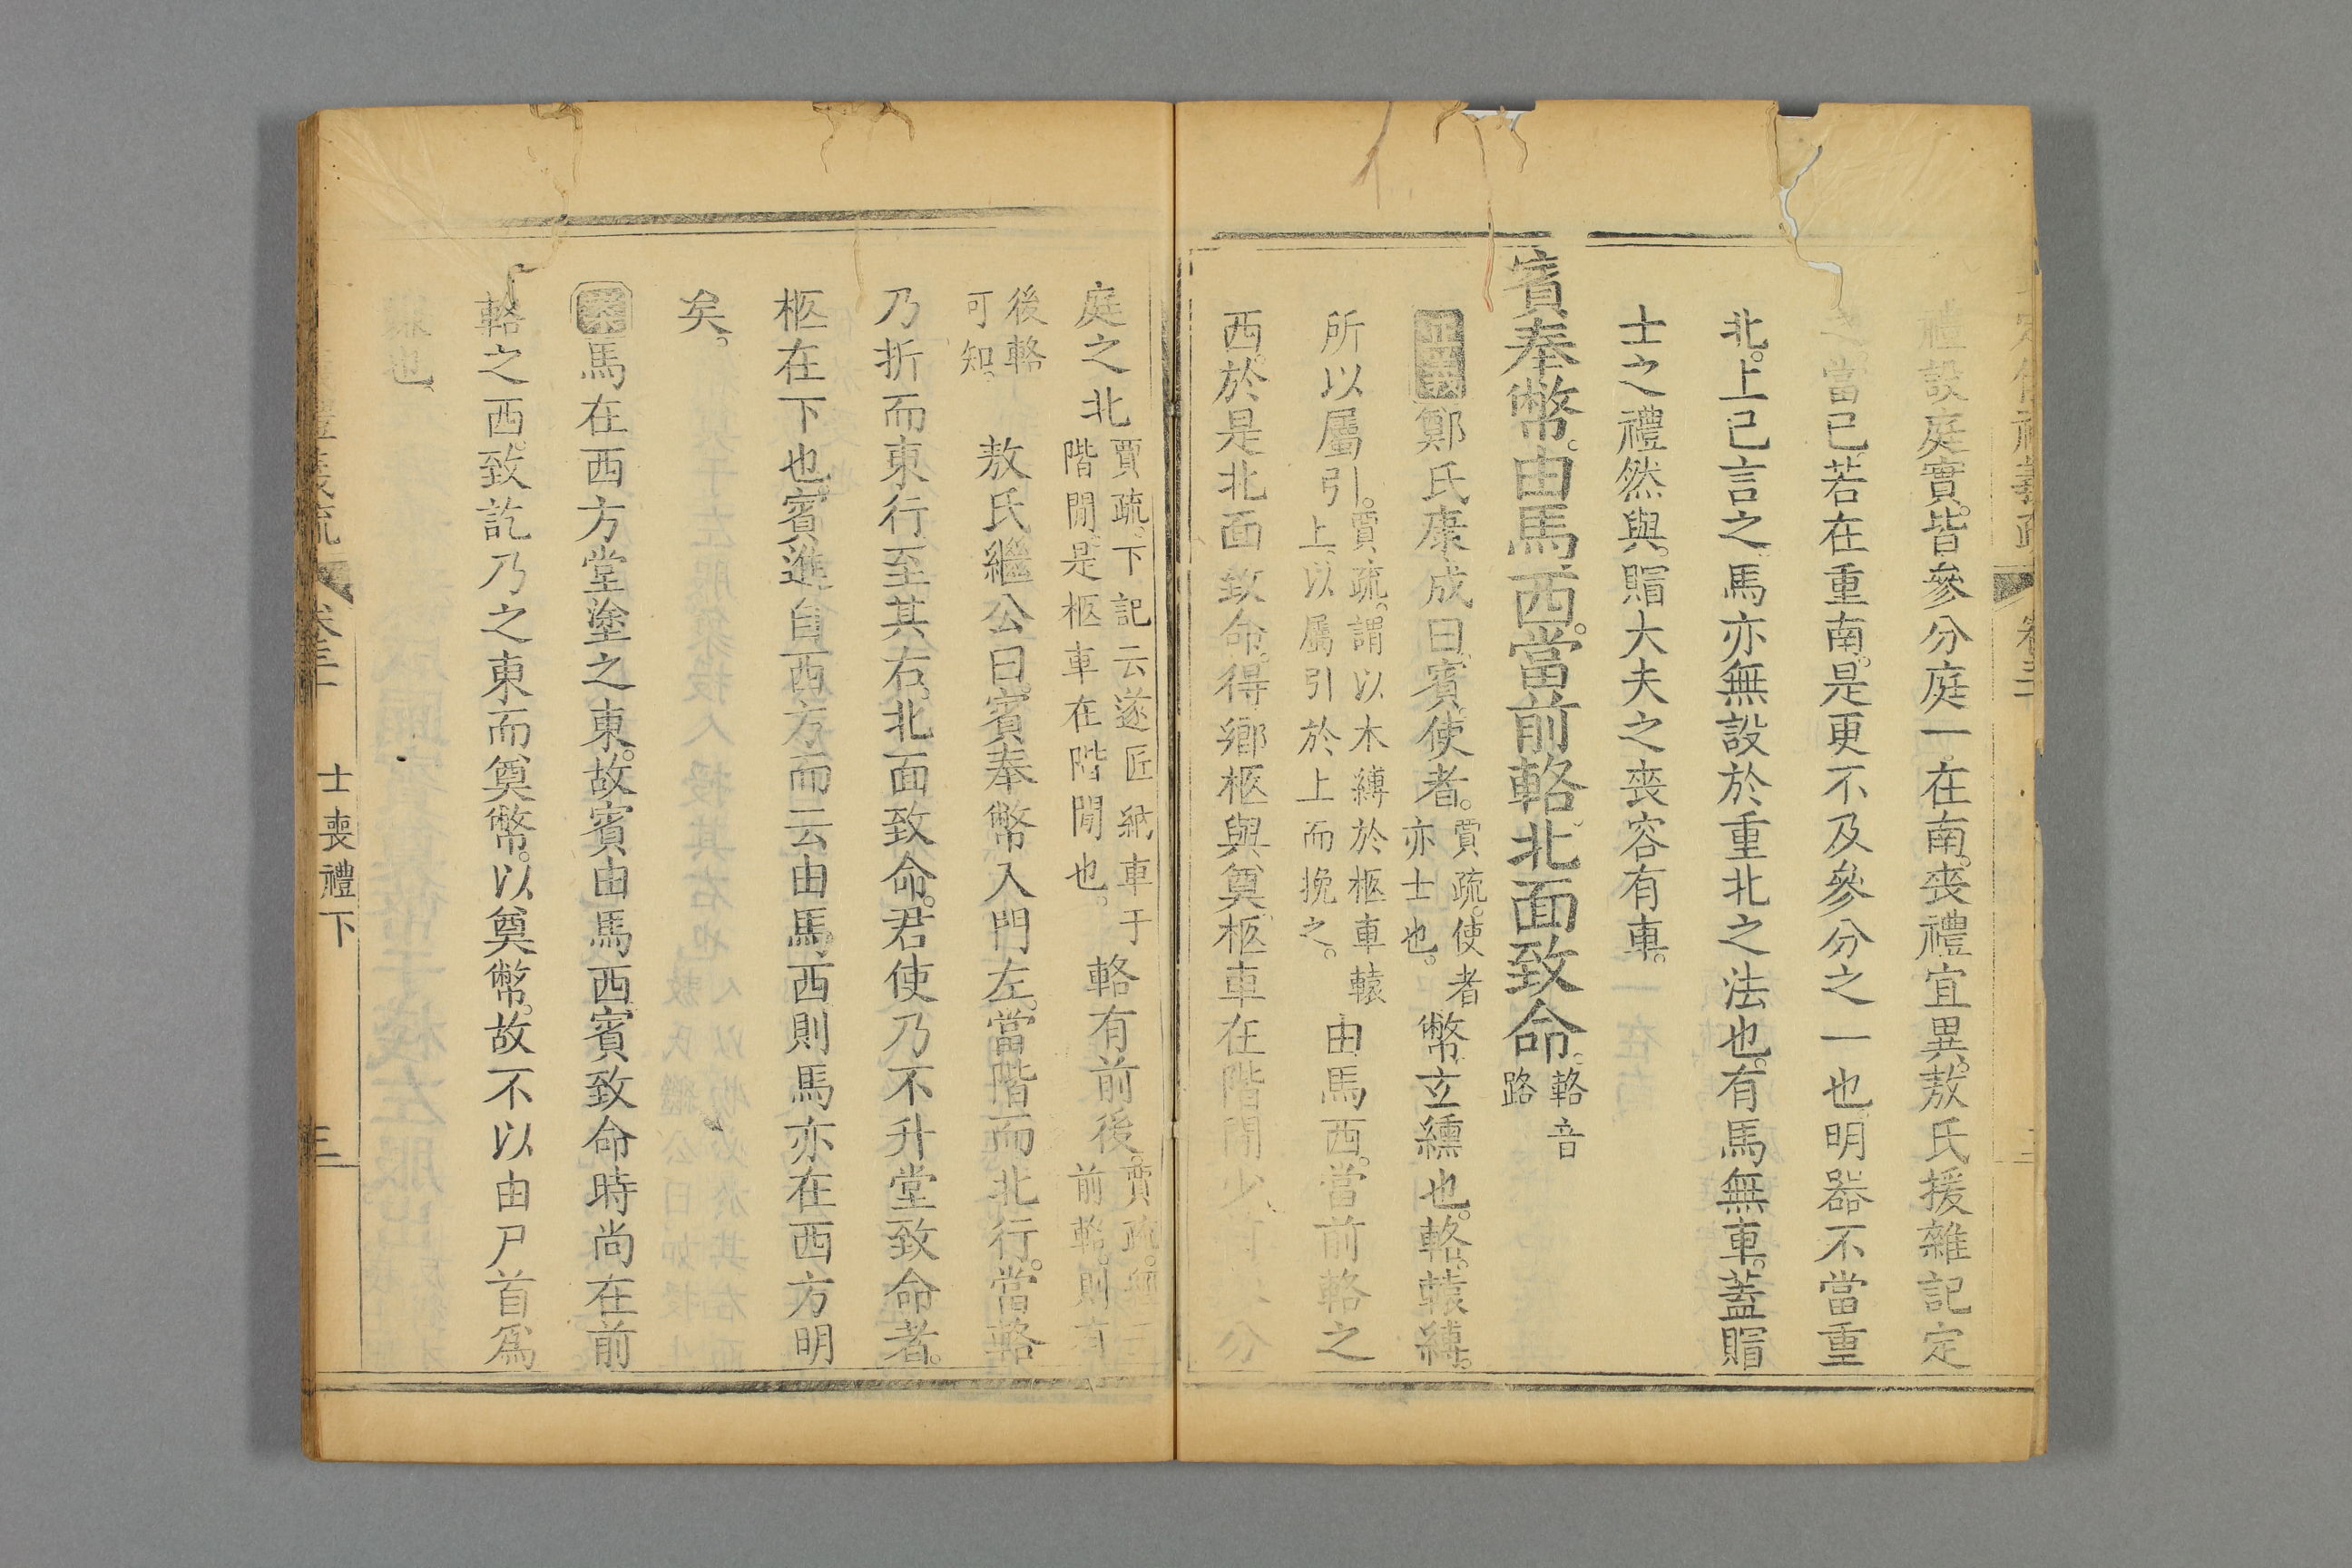 禮設庭實皆參分庭一在南喪禮宜異敖氏援雜記定
當已若在重南是更不及參分之一也明器不當重
北上已言之馬亦無設於重北之法也有馬無車蓋賵
士之禮然與賵大夫之喪容有車
賓奉幣由馬西當前輅北面致命輅音
路
鄭氏康成曰賓使者賈疏使者
亦士也幣玄纁也輅轅縛
所以屬引賈疏謂以木縛於柩車轅
上以屬引於上而挽之由馬西當前輅之
西於是北面致命得鄉柩與奠柩車在階閒少 分
庭之北賈疏下記云遂匠納車于
階閒是柩車在階閒也輅有前後賈疏
前輅則有
後輅
可知敖氏繼公曰賓奉幣入門左當階而北行當輅
乃折而東行至其右北面致命君使乃不升堂致命者
柩在下也賓進自西方而云由馬西則馬亦在西方明
矣
馬在西方堂塗之東故賓由馬西賓致命時尚在前
輅之西致訖乃之東而奠幣以奠幣故不以由尸首爲
嫌也
士喪禮下
三